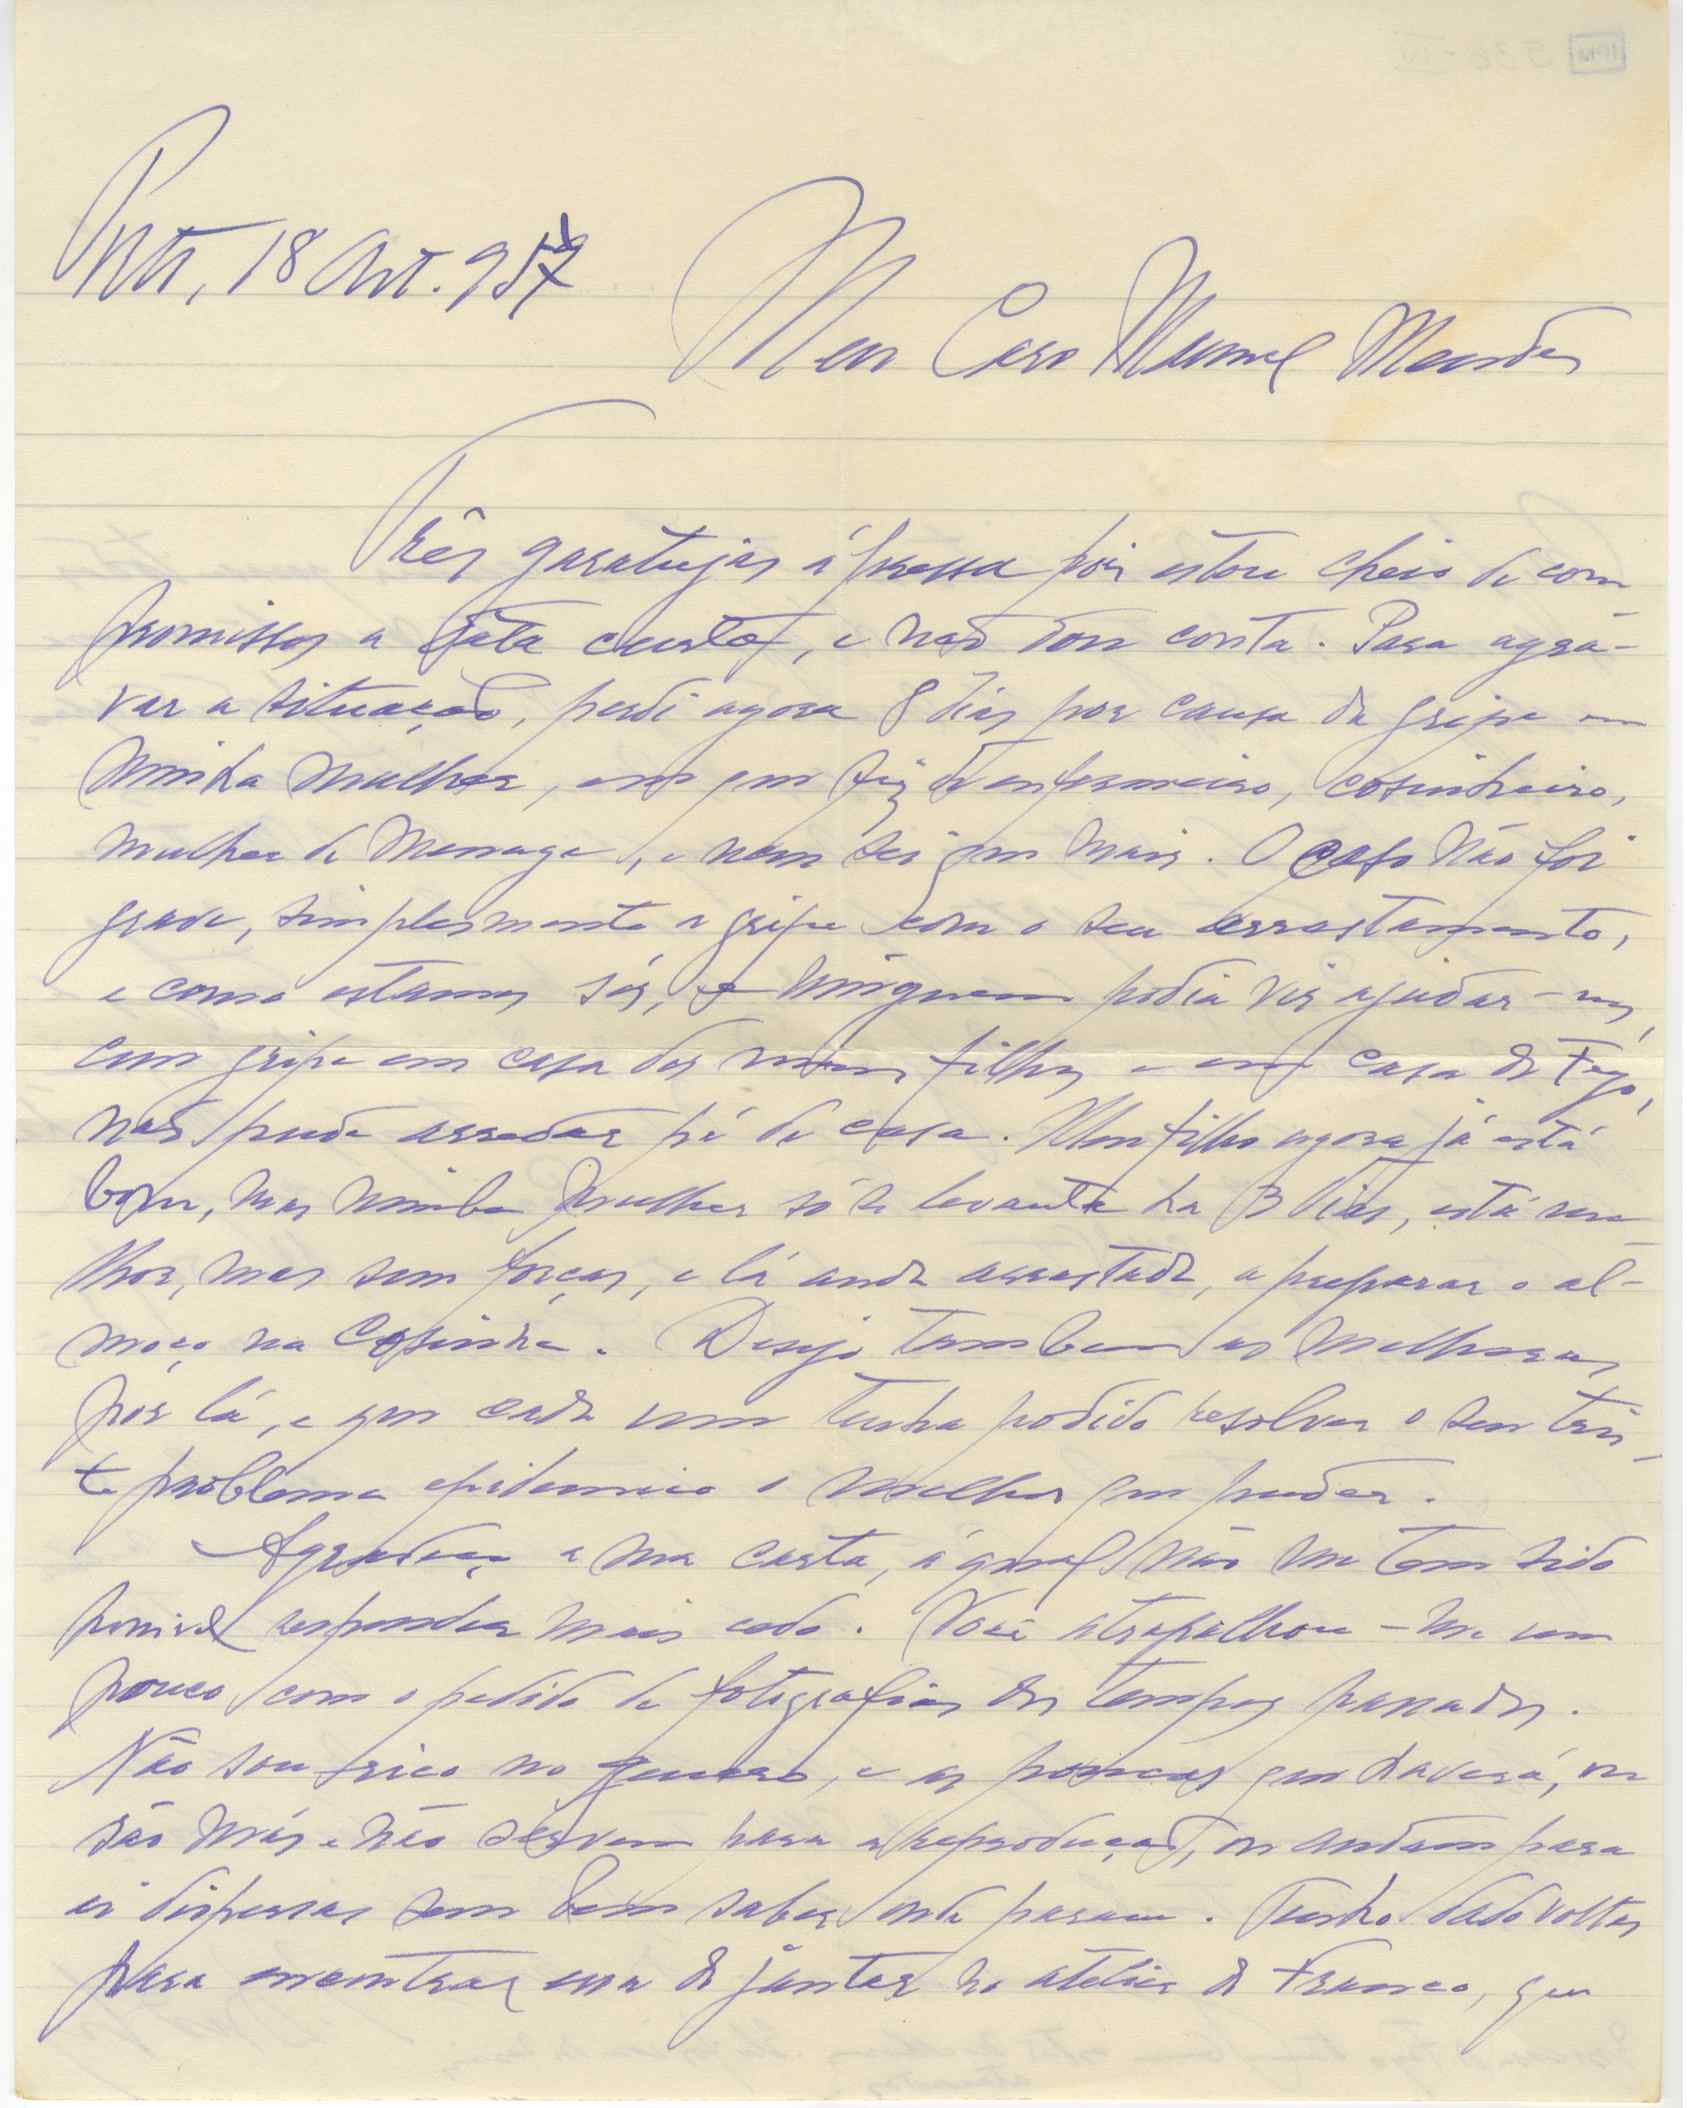 Porto, 18 Out. 957
Meu Caro Manuel Mendes
Três garatujas á pressa pois estou cheio de com
promissos a data certa, e não dou conta. Para agra-
var a situação, perdi agora 8 dias por causa da gripe em
minha mulher, em que fiz de enfermeiro, cosinheiro,
mulher de menage, e nem sei que mais. O caso não foi
grave, simplesmente a gripe com o seu arrastamento,
e como estamos sós, e ninguem podia vir ajudar-nos,
com gripe em casa dos meus filhos e em casa do Tejo,
não pude arredar pé de casa. Meu filho agora já está
bom, mas minha mulher só se levanta ha 3 dias, está me
lhor, mas sem forças, e lá anda arrastada, a preparar o al-
moço na cosinha. Desejo tambem as melhoras
por lá, e que cada um tenha podido resolver o seu tris-
te problema epidemico o melhor que puder.
Agradeço a sua carta, á qual não me tem sido
possivel responder mais cedo. Você atrapalhou-me um
pouco com o pedido de fotografias dos tempos passados.
Não sou rico no genero, e as poucas que haverá, ou
são más e não servem para a reprodução, ou andam para
ai dispersas sem bem saber onde param. Tenho dado voltas
para encontrar essa do jantar no atelier do Franco, que